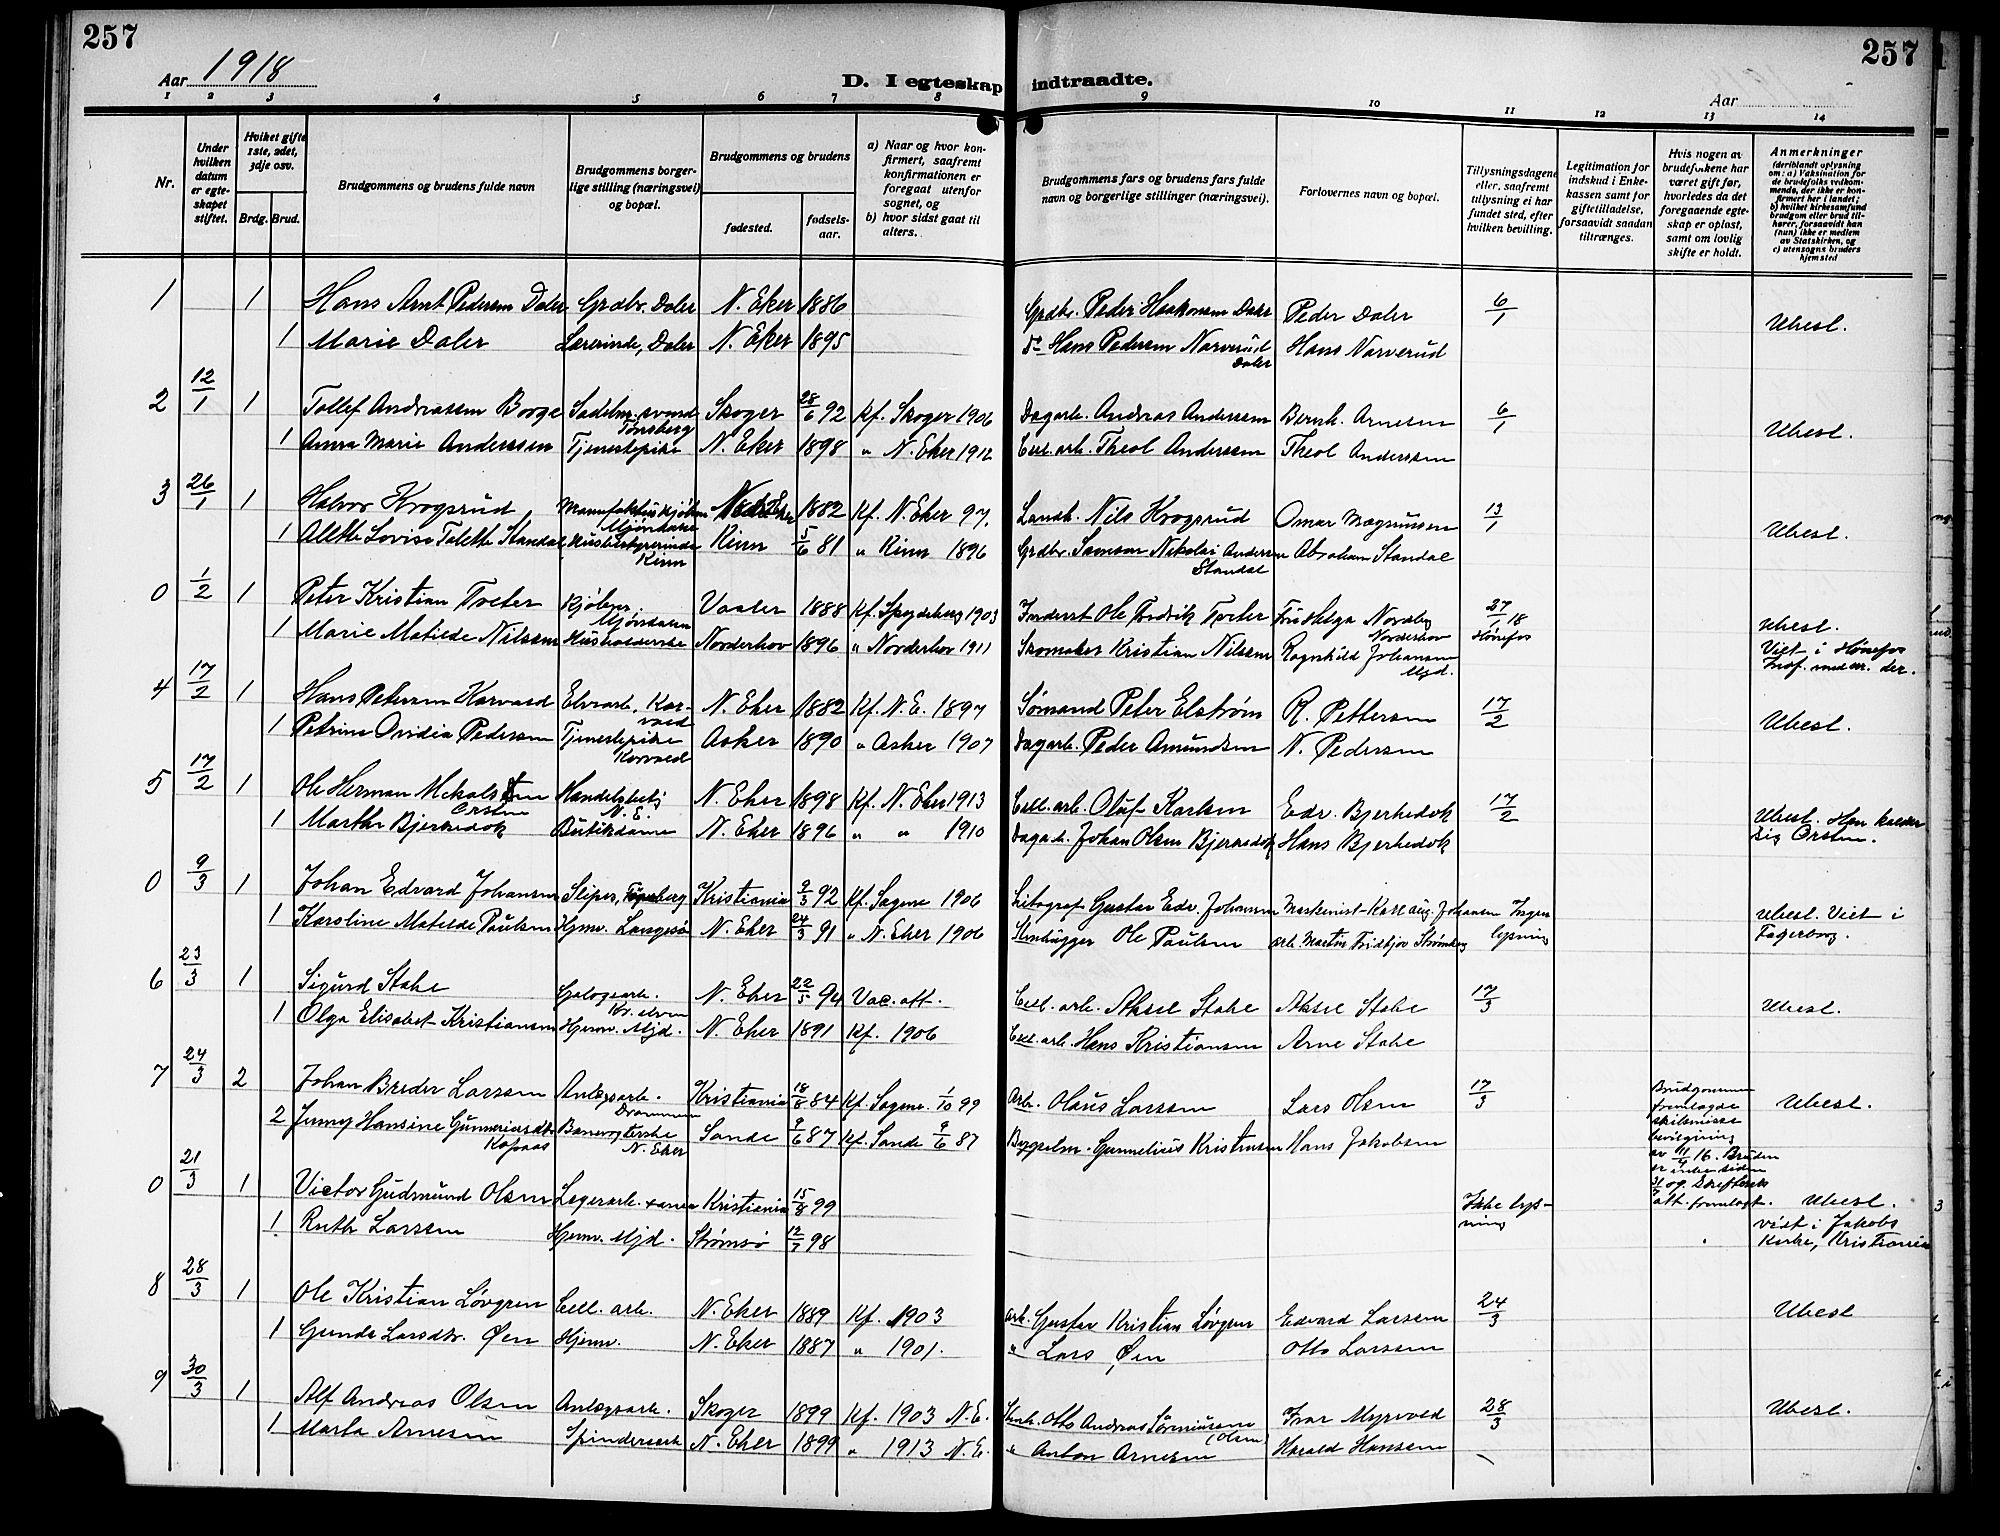 257
257
Aar 1918
D. I egteskap indtraadte.
Aar
1 2 3 4 5 6 7 8 9 10 11 12 13 14
Nr.
Under hvilken datum er egteskapet stiftet.
Hvilket gifte 1ste, 2det, 3dje osv.
Brdg. Brud.
Brudgommens og brudens fulde navn
Brudgommens borgerlige stilling (næringsvei) og bopæl.
Brudgommens og brudens
fødested.
fødselsaar.
a) Naar og hvor konfirmert, saafremt konfirmationen er foregaat utenfor sognet, og
b) hvor sidst gaat til alters.
Brudgommens fars og brudens fars fulde navn og borgerlige stillinger (næringsvei).
Forlovernes navn og bopæl.
Tillysningsdagene eller, saafremt tillysning ei har fundet sted, efter hvilken bevilling.
Legitimation for indskud i Enkekassen samt for giftetilladelse, forsaavidt saadan tiltrænges.
Hvis nogen av brudefolkene har været gift før, hvorledes da det foregaaende egteskap er opløst, samt om lovlig skifte er holdt.
Anmerkninger
(deriblandt oplysning om: a) Vaksination for de brudefolks vedkommende, der ikke er konfirmert her i landet; b) hvilket kirkesamfund brudgom eller brud tilhører, forsaavidt han (hun) ikke er medlem av Statskirken, og c) utensogns bruders hjemsted
1 1 Hans Arnt Pedersen Daler Grdbr. Daler N. Eker 1886 Grdbr. Peder Haakonsen Daler Peder Daler 6/1
1 Marie Daler Lærerinde, Daler N. Eker 1895 Do Hans Pedersen Narverud Daler Hans Narverud Ubesl.
2 12/1 1 Tollef Andreassen Borge Sadelm. svend Tønsberg Skoger 28/6 92 Kf. Skoger 1906 Dagarb. Andreas Andersen Bernh. Arnesen 6/1
1 Anna Marie Anderssen Tjenestepike N. Eker 1898 " N. Eker 1912 Cell. arb. Theol Anderssen Theol Anderssen Ubesl.
3 26/1 1 Halvor Krogsrud Mjøndalen 1882 Kf. N. Eker 97. Landh. Nils Krogsrud Omar Magnussen 13/1
1 Alette Lovise Talette Standal Husbestyrerinde Kinn Kinn 5/6 81 " Kinn 1896 Grdbr. Samson Nikolai Andersen Standal Abraham Standal Ubesl.
0 1/2 1 Peter Kristian Tveter Kjøbm. Mjøndalen Vaaler 1888 Kf. Spydeberg 1903 Ole Fredrik Tveter Fru Helga Nordby Norderhov 27/1 18 Hønefos Ubesl.
1 Marie Matilde Nilssen Husholderske Norderhov 1896 " Norderhov 1911 Skomaker Kristian Nilssen Ragnhild Johansen Mjd. Viet i Hønefos
4 17/2 1 Hans Petersen Horvaed Elvearb. N. Eker 1882 Kf. N. E. 1897 Sømand Peter Elstrøm R. Pettersen 17/2
1 Petrine Ovidia Pedersen Tjenestepike Asker 1890 " Asker 1907 Dagarb. Peder Amundsen N. Pedersen Ubesl.
5 17/2 1 Ole Herman Handelsbetj. N. E. N. Eker 1898 Kf. N. Eker 1913 Cell. arb. Oluf Karlsen Edv. Bjerkedok 17/2
1 Marthe Bjerkedok Butikdame N. Eker 1896 " " 1910 Dagarb. Johan Olsen Bjerkedok Hans Bjerkedok Ubesl. Han kalder sig Orsten.
0 9/3 1 Johan Edvard Johansen Sliper, Kristiania 2/3 92 Kf. Sagene 1906 Litograf Gustav Edv. Johansen Maskinist Karl Aug. Johansen Ingen lysning
1 Karoline Matilde Paulsen Hjemv. Langesø N. Eker 24/3 91 " N. Eker 1906 Stenhugger Ole Paulsen arb. Martin Fridtjov Strømberg Ubesl. Viet i Fagerborg.
6 23/3 1 Sigurd Stabe N. Eker 22/5 94 Vac. att. Cell. arb. Aksel Stabe Aksel Stabe 17/3
1 Olga Elisabet Kristiansen Hjemv. Mjd. N. Eker 1891 Kf. 1906 Cell. arb. Hans Kristiansen Arne Stabe Ubesl.
7 24/3 2 Johan Breder Larssen Anlegsarb. Drammen Kristiania 18/8 84 Kf. Sagene 1/10 99 Arb. Olaus Larssen Lars Olsen 17/3 Ubesl.
2 Jenny Hansine Gunneriusdtr. Kopaas Banevogterske N. Eker Sande 9/6 87 Kf. Sande 9/6 87 Gunnelius Kristensen Hans Jakobsen
Brudgommen fremlagde skilsmisse bevilgning av 11/4 16. Bruden er enke siden og Skifteatt. fremlagt.
0 21/3 1 Victor Gudmund Olsen Lagerarb. Kristiania 15/8 99 Ikke lysning Ubesl.
1 Ruth Larssen Hjemv. Mjd. Strømsø 12/7 98 viet i Jakobs Kirke, Kristiania
8 28/3 1 Ole Kristian Løvgren Cell. arb. N. Eker 1889 Kf. 1903 arb. Gustav Kristian Løvgren Edvard Larssen 24/3 Ubesl
1 Gunda Larsdtr. Øen Hjemv. N. Eker 1887 " 1901. " Lars Øen Otto Larssen
9 30/3 1 Alf Andreas Olsen Anlegsarb. Skoger 1899 Kf. 1903 N.E. Otto Andreas Sørensen (Olsen) Ivar Myrvold 28/3 Ubesl.
1 Marta Arnesen N. Eker 1899 " 1913 N.E. " Anton Arnesen Harald Hansen